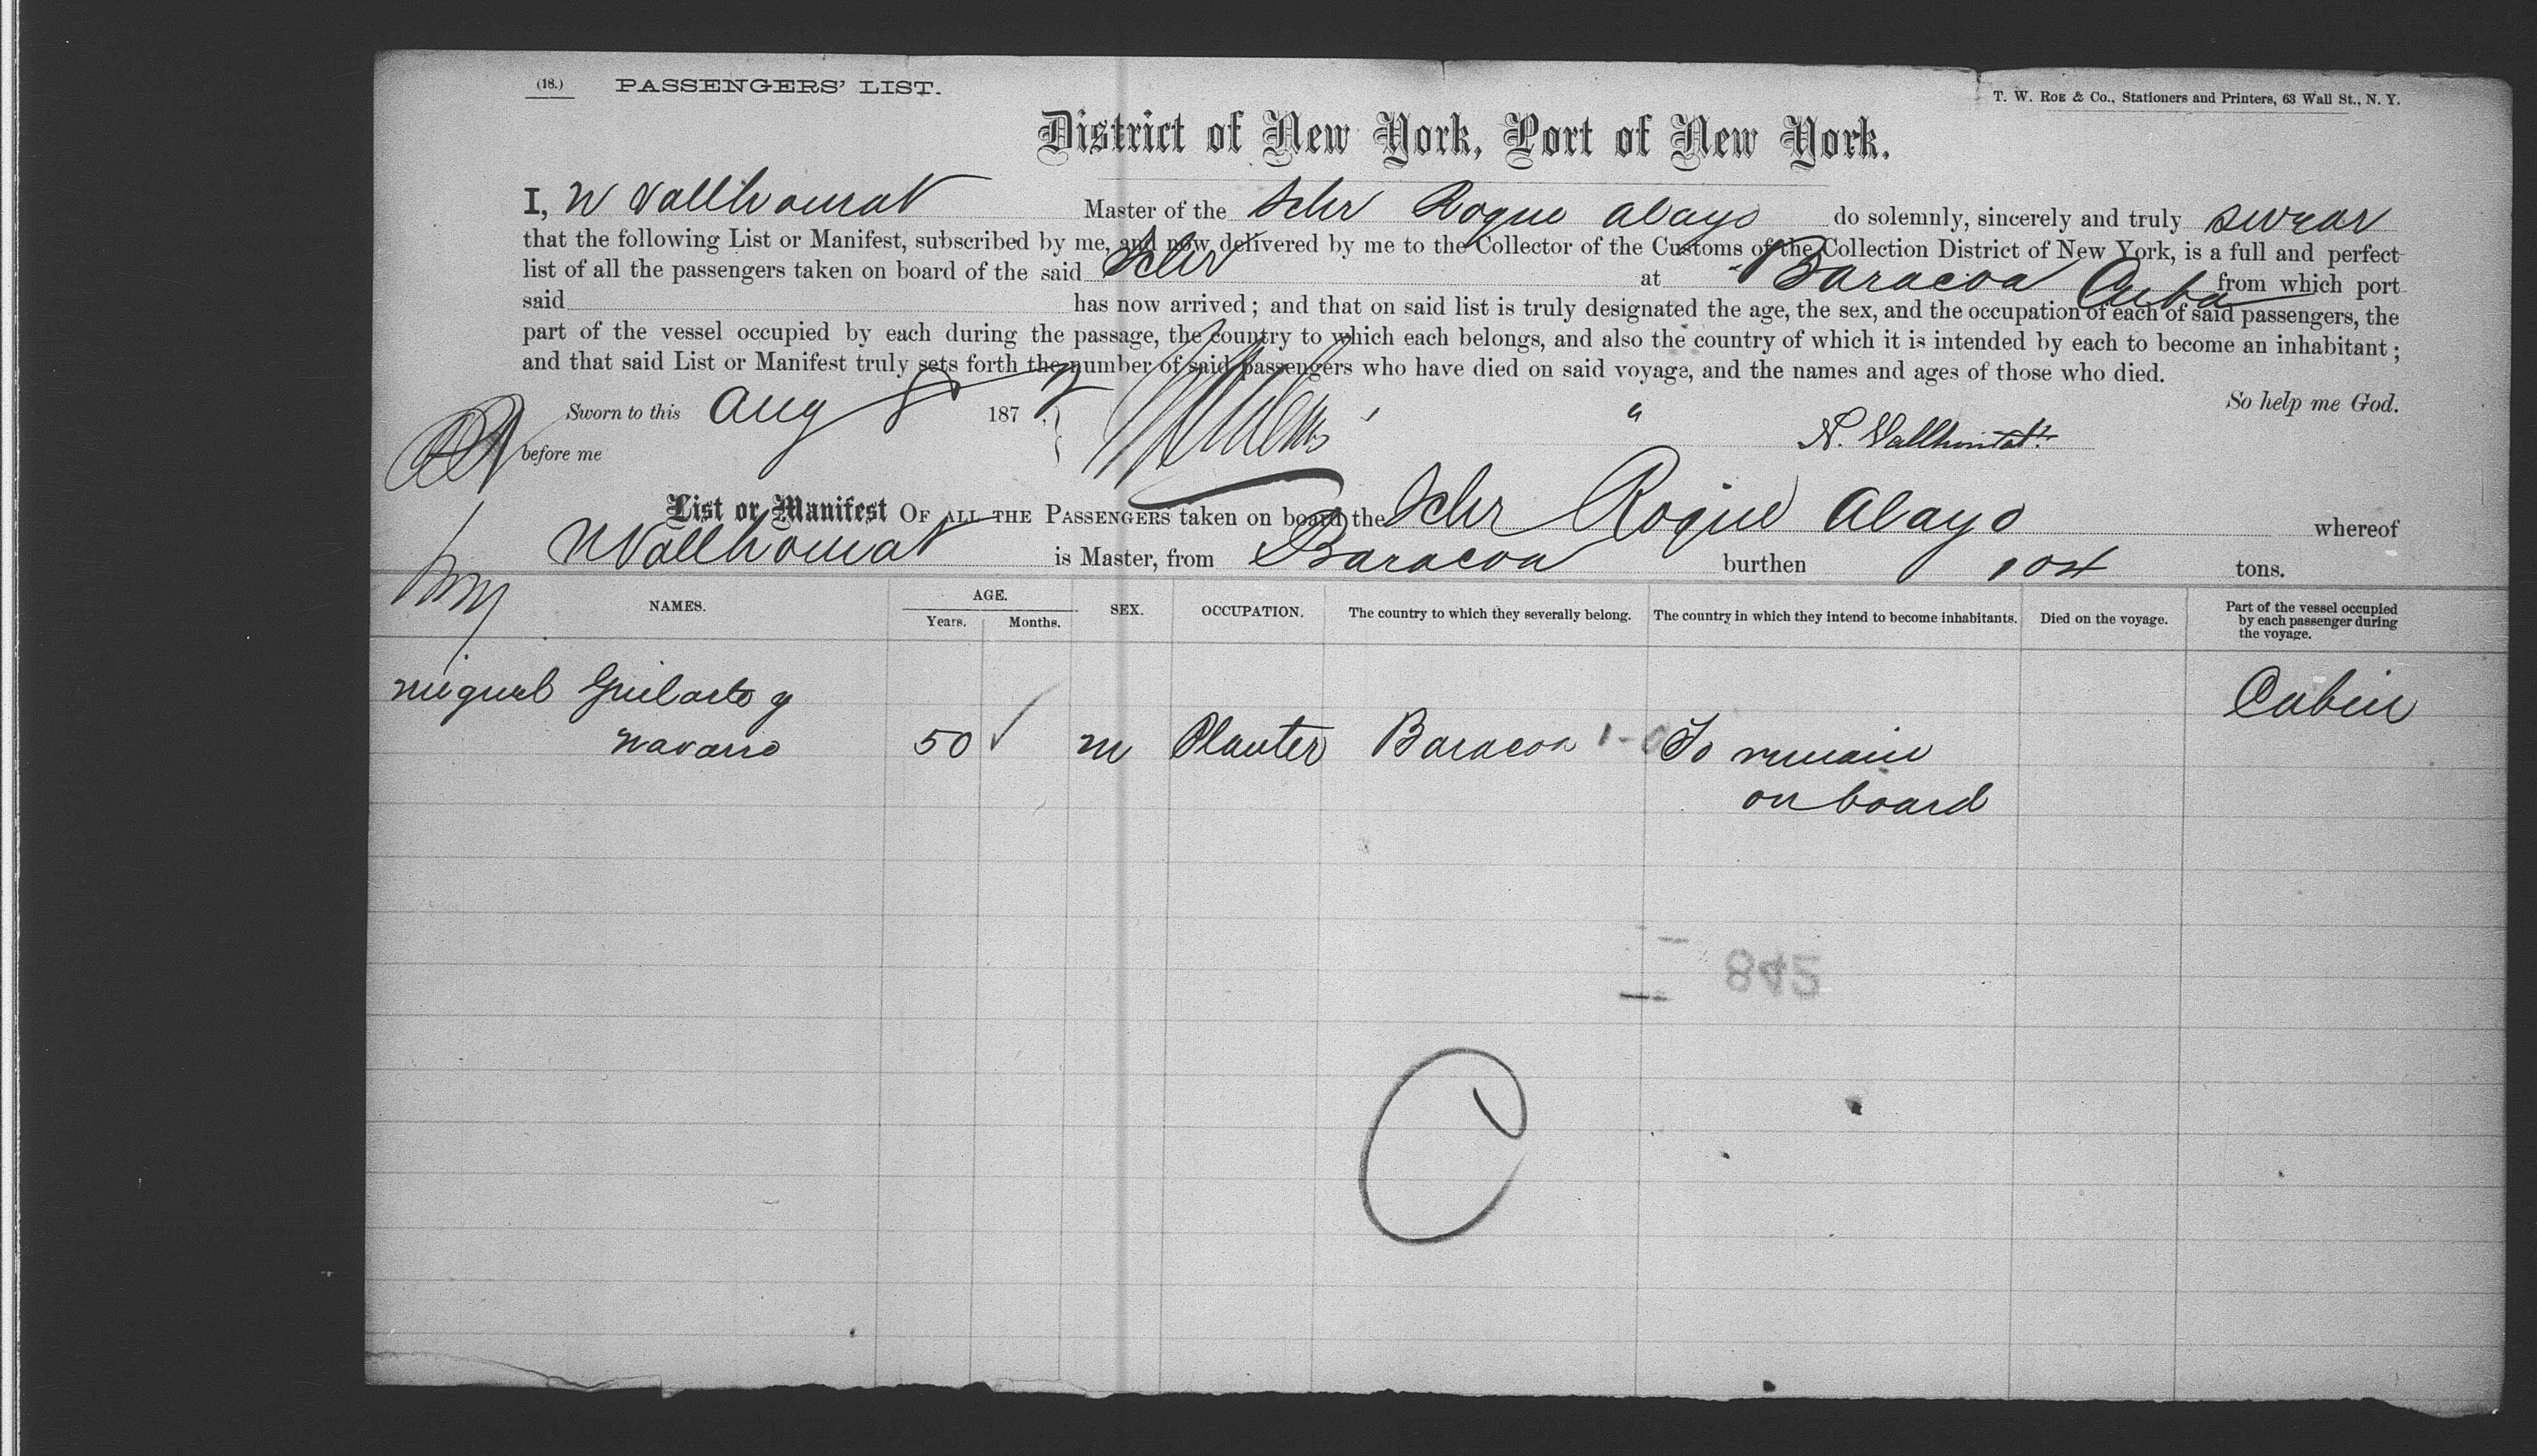 (18.) PASSENGERS' LIST.
T. W. ROE & Co., Stationers and Printers, 63 Wall St., N. Y.
District of New York, Port of New York.
I, N Vallhonrat Master of the Schr Roque Alayo do solemnly, sincerely and truly swear
that the following List or Manifest, subscribed by me, and now delivered by me to the Collector of the Customs of the Collection District of New York, is a full and perfect
list of all the passengers taken on board of the said Schr at Baracoa Cuba from which port
said has now arrived; and that on said list is truly designated the age, the sex, and the occupation of each of said passengers, the
part of the vessel occupied by each during the passage, the country to which each belongs, and also the country of which it is intended by each to become an inhabitant;
and that said List or Manifest truly sets forth the number of said passengers who have died on said voyage, and the names and ages of those who died.
So help me God.
Sworn to this Aug 8 187
before me
N. Vallhonrat
List or Manifest OF ALL THE PASSENGERS taken on board the Schr Roque Alayo whereof
N Vallhonrat is Master, from Baracoa burthen 104 tons.
NAMES. AGE. Years. Months. SEX. OCCUPATION. The country to which they severally belong. The country in which they intend to become inhabitants. Died on the voyage. Part of the vessel occupied by each passenger during the voyage.
Miguel Guilarto y Cabin
Navarro 50 ✓ m Planter Baracoa To remain
on board
842
C